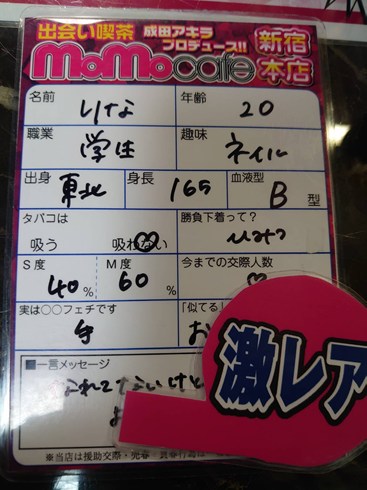 出会い喫茶 成田アキラ
プロデュース!!
MoMocafe 新宿本店
名前 りな 年齢 20
職業 学生 趣味 ネイル
出身 東北 身長 165 血液型 B 型
タバコは 吸う 吸わない 勝負下着って?
S度 40% M度 60% 今までの交際人数
実は○○フェチです 手 「似てる」
激レア
■一言メッセージ
なれてないけど
※当店は援助交際・売春